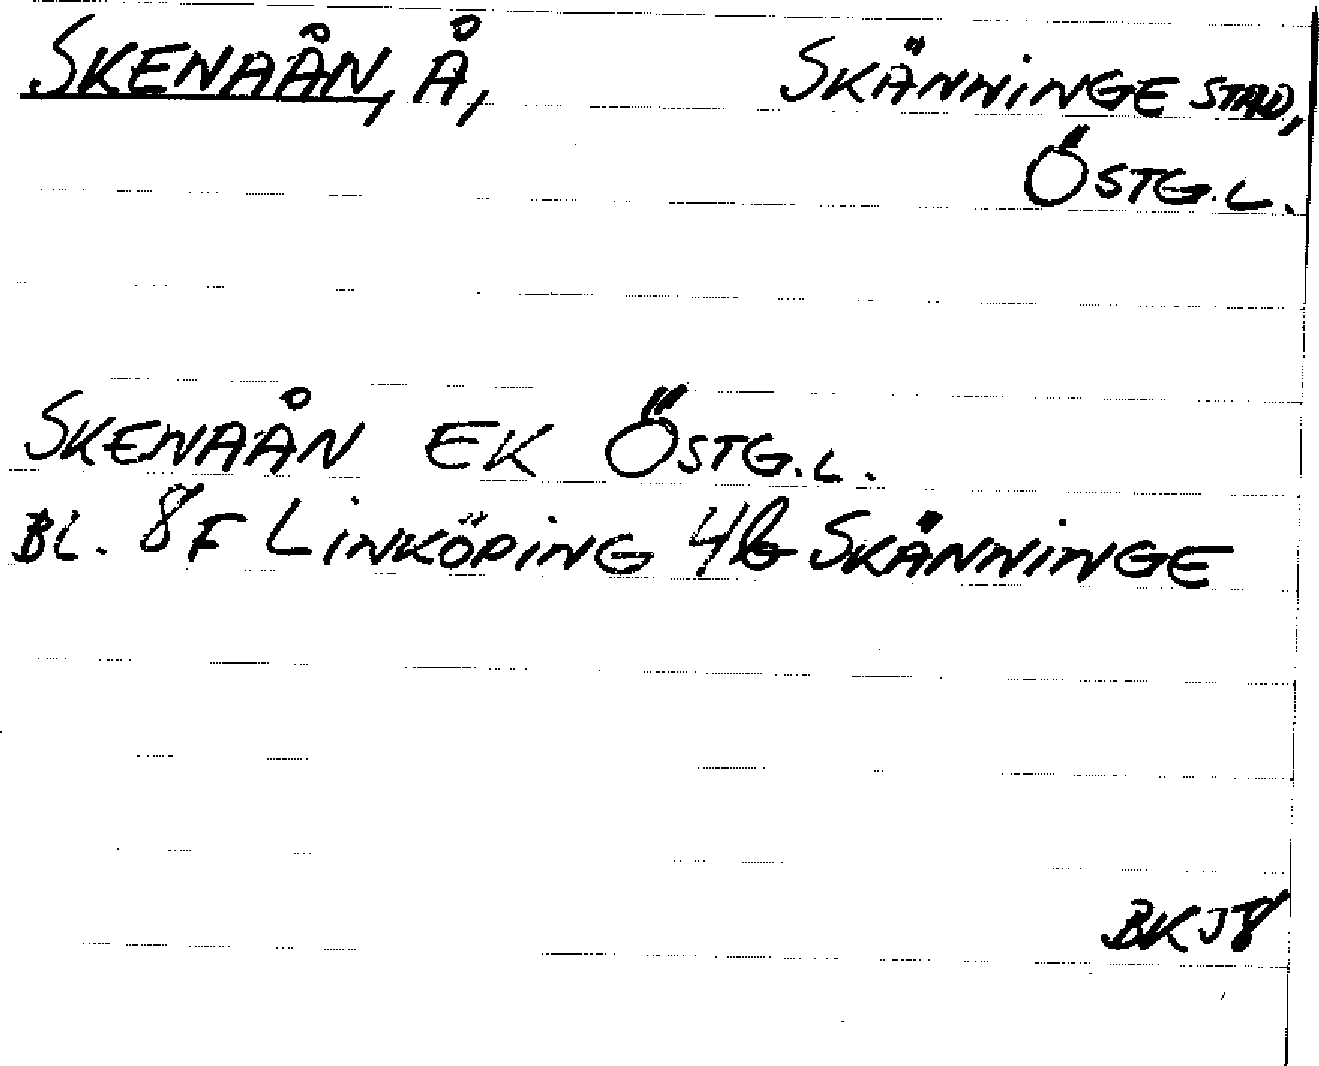 SKENAÅN, Å, SKÄNNINGE STAD,
ÖSTG.L.
SKENAÅN EK ÖSTG.L.
BL. 8F LINKÖPING 4b SKÄNNINGE